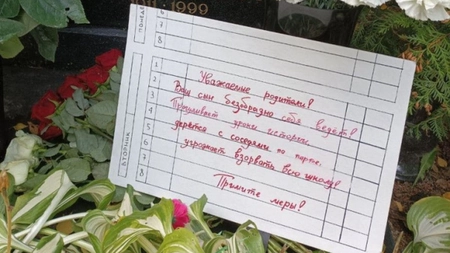 1999
ПОНЕДЕЛ
6
7
8
ВТОРНИК
1
2
3
4
5
6
7
8
Уважаемые родители!
Ваш сын безобразно себя ведёт!
Прогуливает уроки истории,
дерётся с соседями по парте,
угрожает взорвать всю школу!
Примите меры!